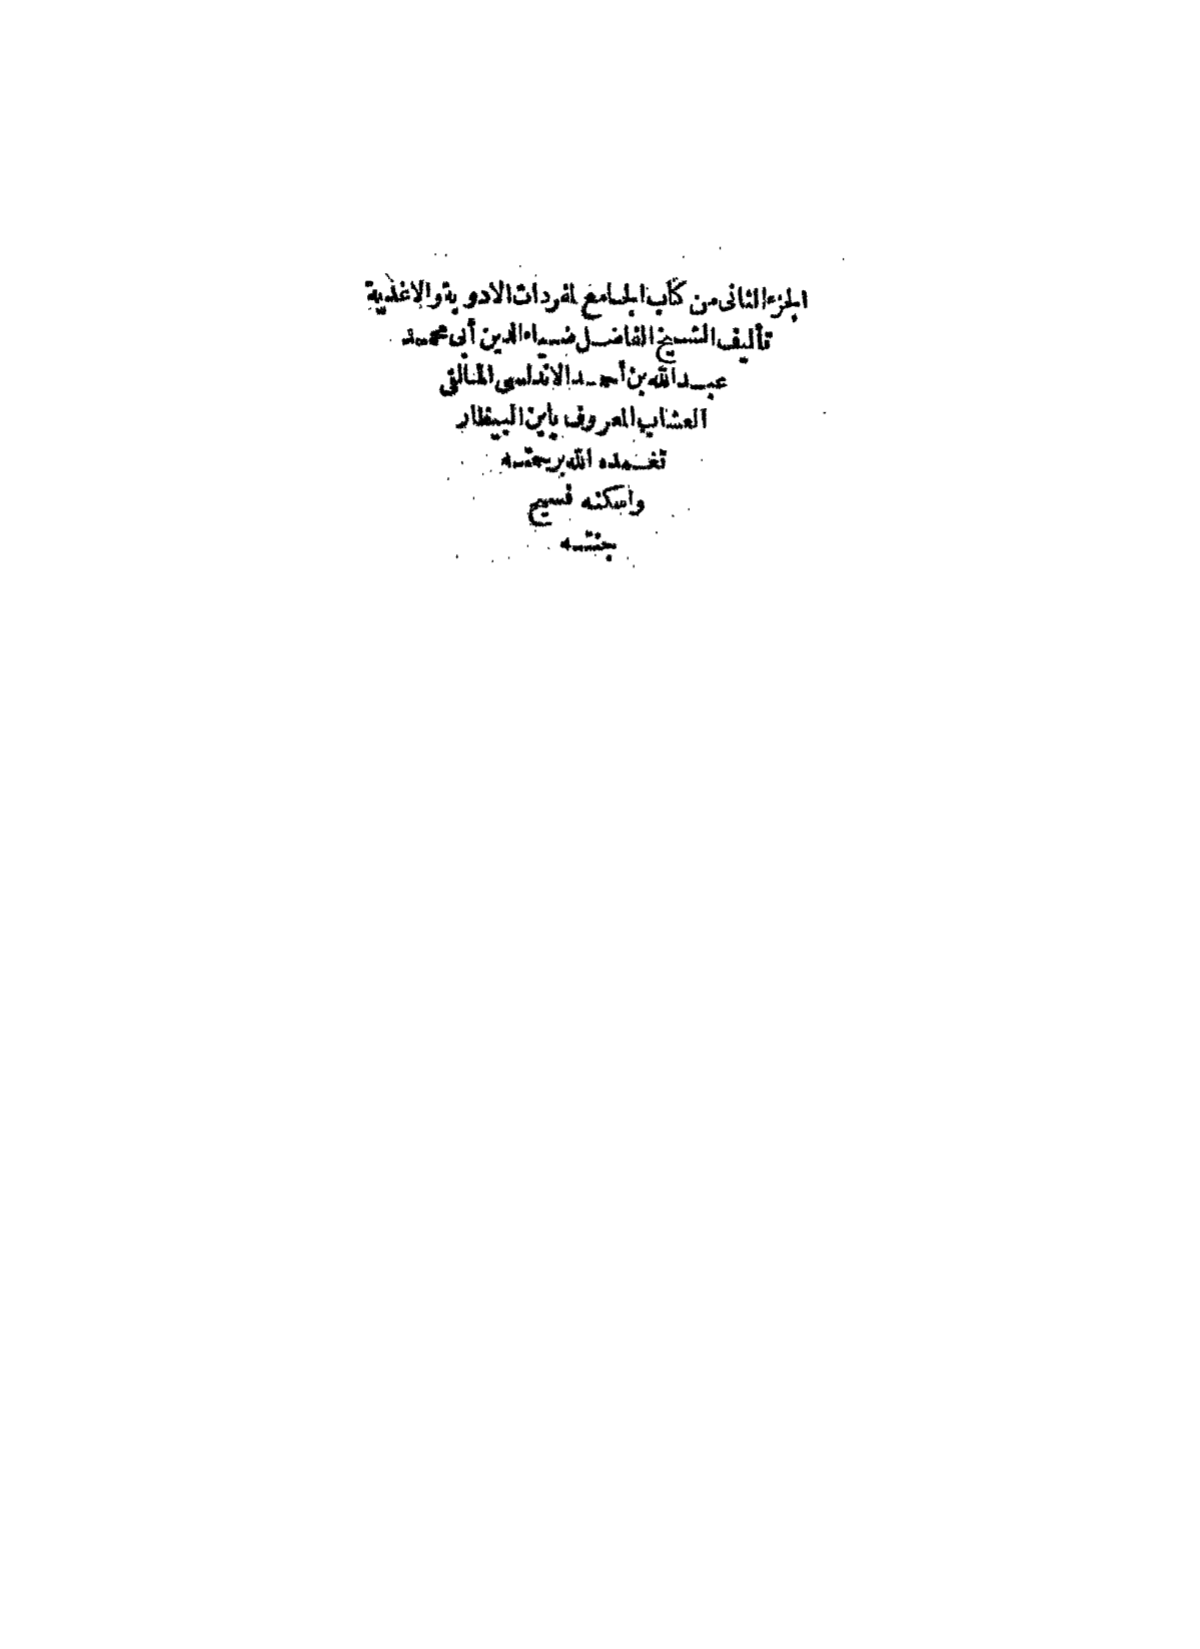 الجزء الثانى من كتاب الجامع لمفردات الادوية والاغذية
تأليف الشيخ الفاضل ضياء الدين أبى محمد
عبد الله بن أحمد الاندلسى المالقى
العشاب المعروف بابن البيطار
تغمده الله برحمته
واسكنه فسيح
جنته